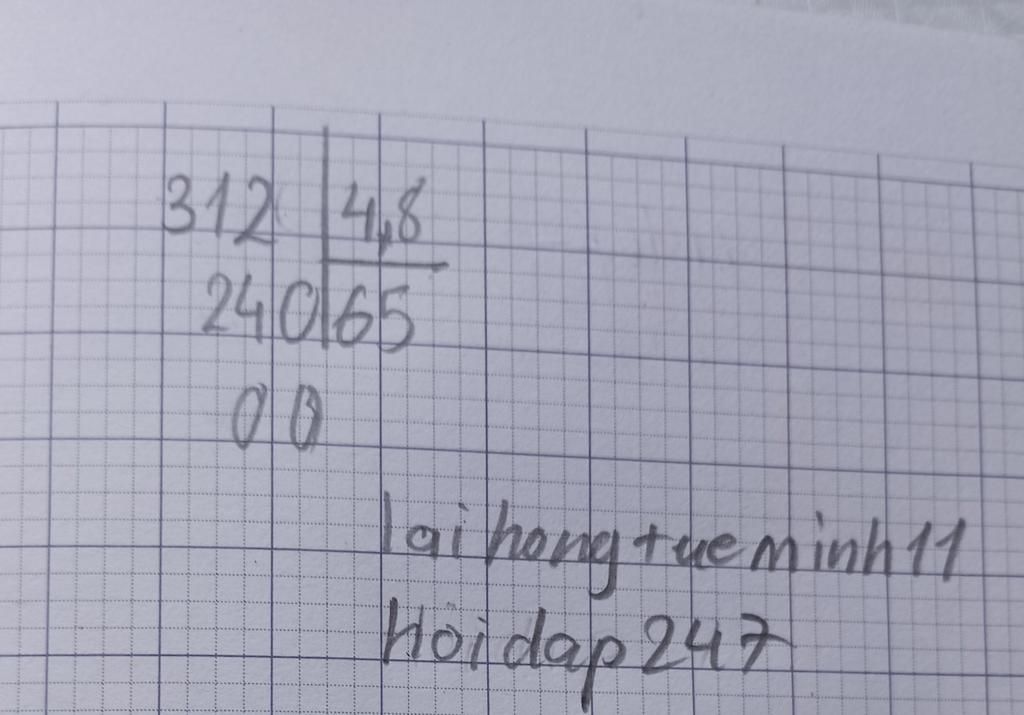 312 4,8
240 65
00
laihongtueminh11
Hoidap247